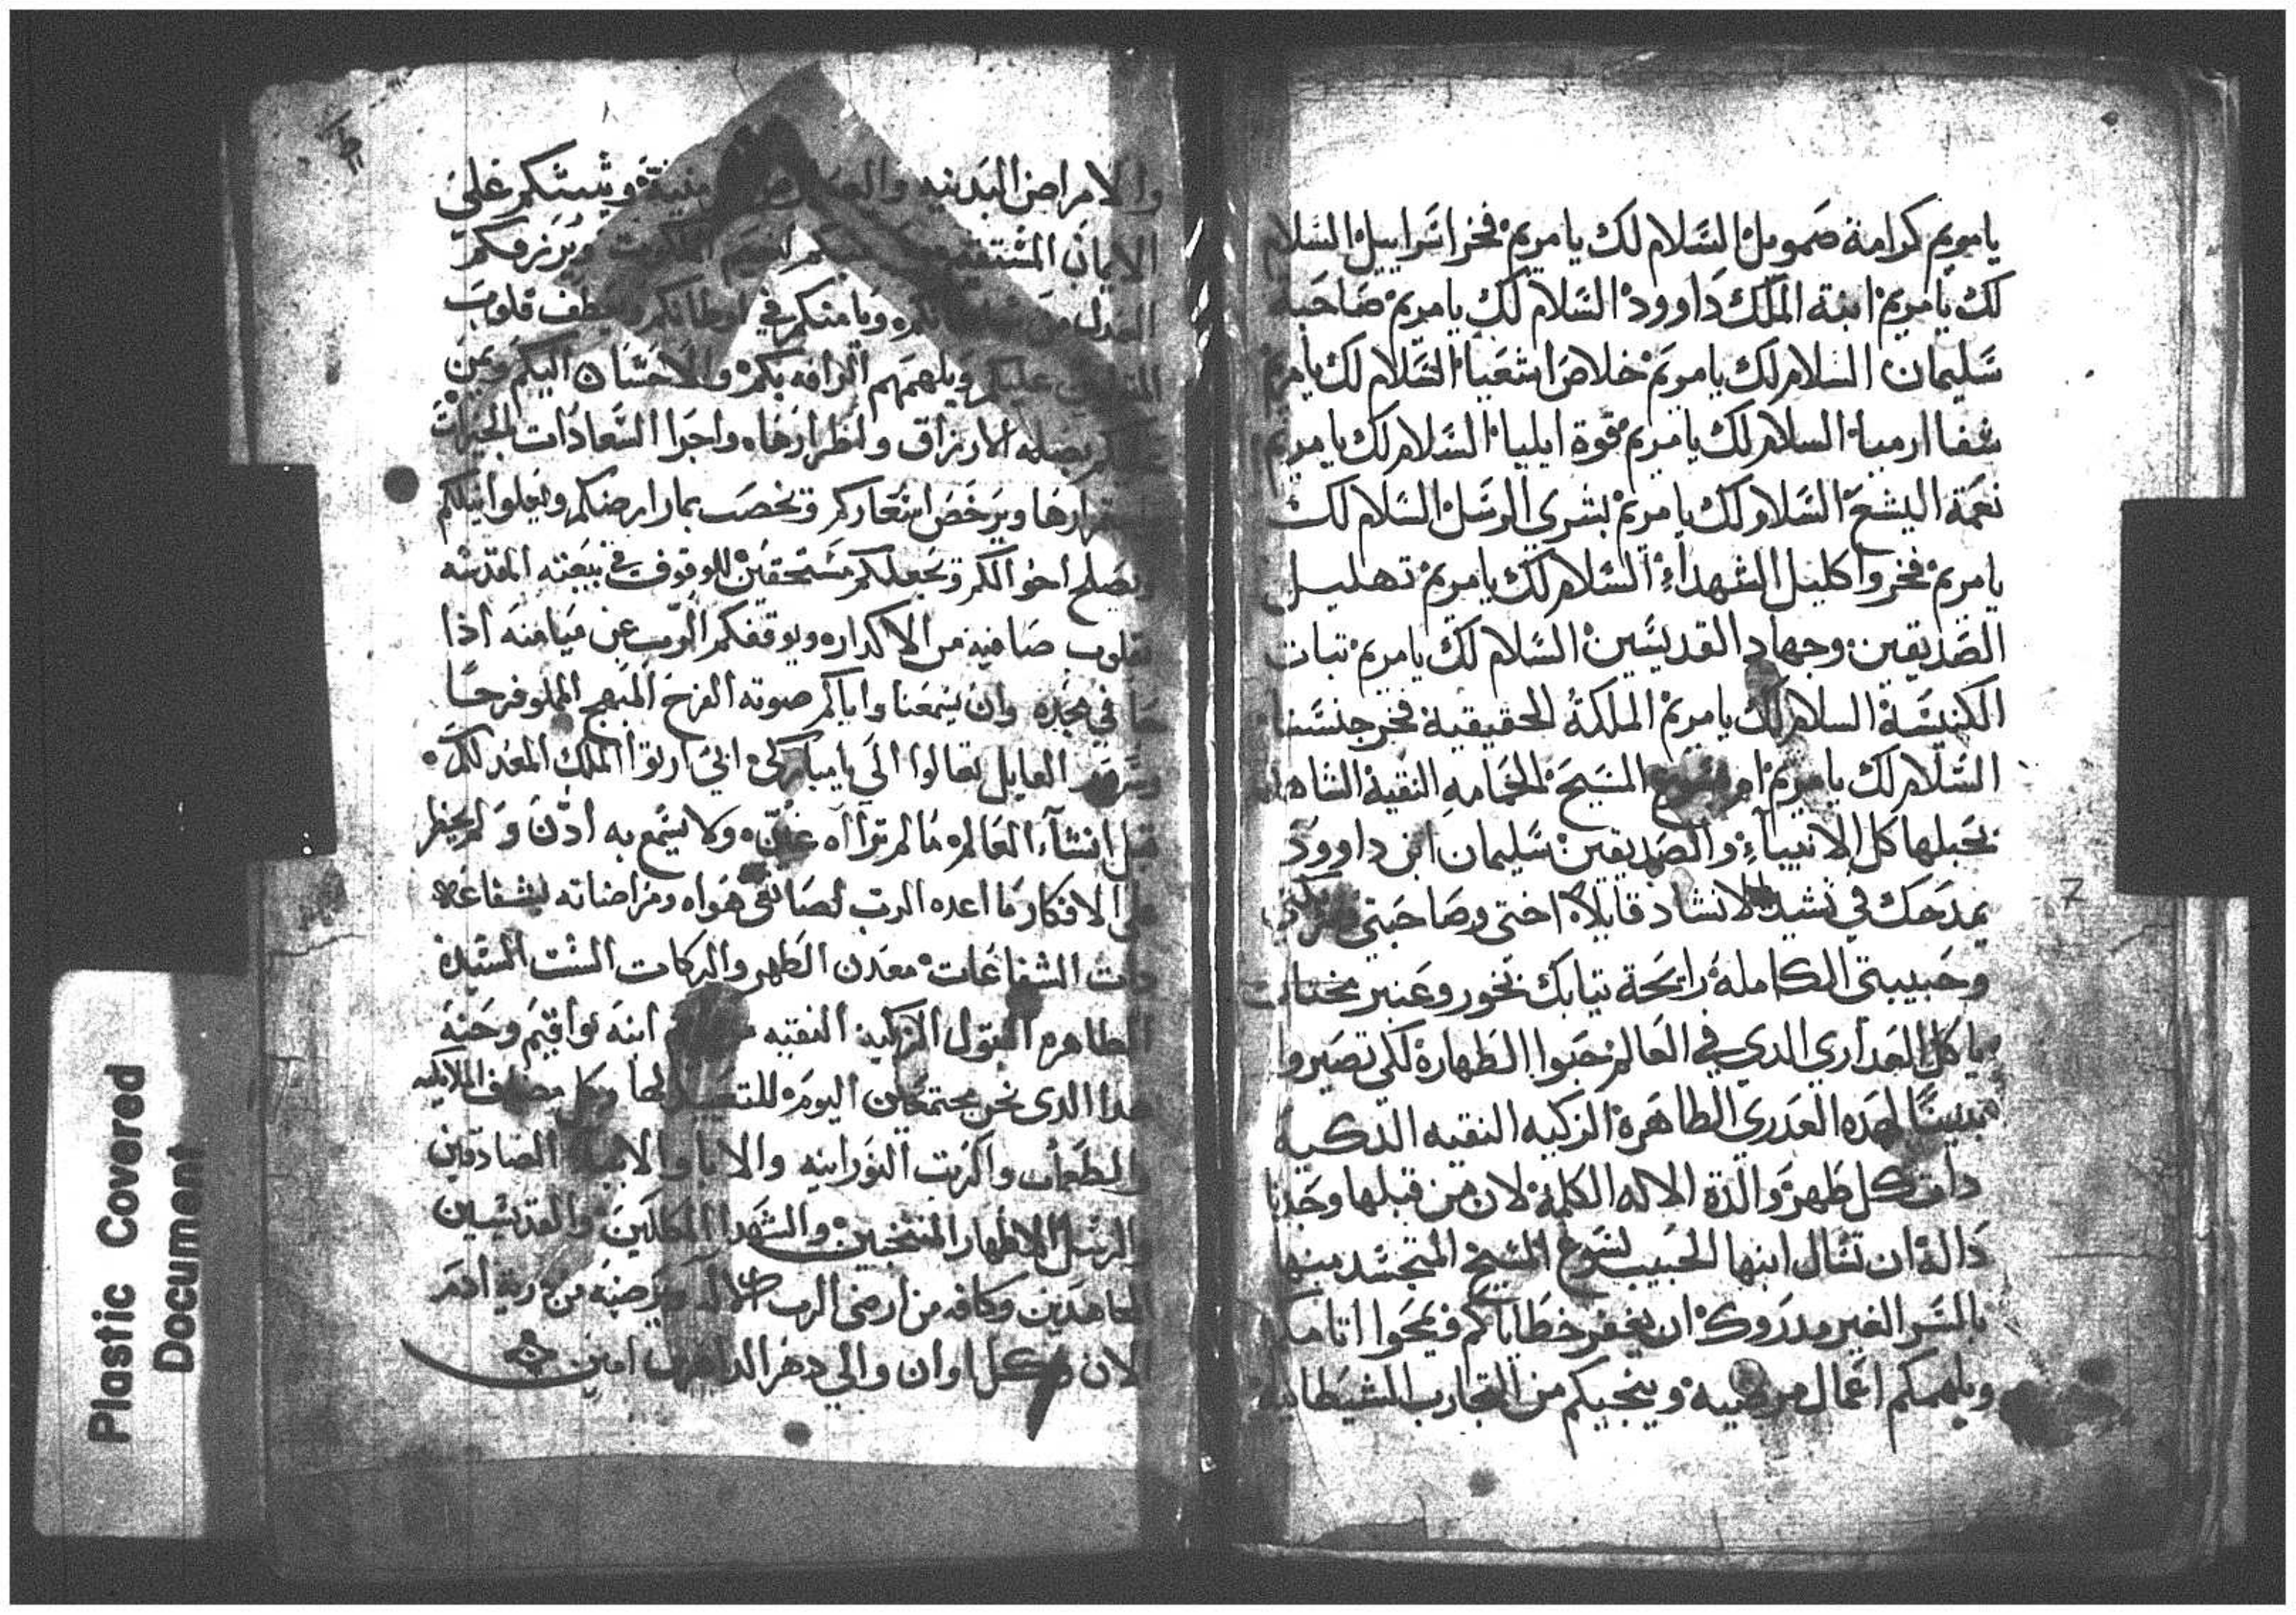 يا مريم كرامة صمويل السلام لك يا مريم فخر اسراييل السلام
لك يا مريم ابنة الملك داوود السلام لك يا مريم صاحبة
سليمان السلام لك يا مريم خلاص اشعيا السلام لك يا مريم
شفا ارميا السلام لك يا مريم قوة ايليا السلام لك يا مريم
نعمة اليشع السلام لك يا مريم بشري الرسل السلام لك
يا مريم فخر واكليل الشهداء السلام لك يا مريم تهليل
الصديقين وجهاد القديسين السلام لك يا مريم تبات
الكنيسة السلام لك يا مريم الملكة الحقيقية فخر جنسنا
السلام لك يا مريم ام يسوع المسيح الحمامه النقية الشاهد
كل الانبياء والصديقين سليمان ابن داوود
يمدحك في نشيد الانشاد قايلا اختي وصاحبتي
وحبيبتي الكاملة رايحة تيابك بخور وعنبر مختار
يا كل العداري الدي في العالم حبوا الطهارة لكي تصيروا
لهده العدري الطاهرة الزكيه النقيه الدكية
دات كل طهر والدة الاله الكلمة لان من قبلها وجدنا
دالة ان تسال ابنها الحبيب يسوع المسيح المتجسد منها
بالسر الغير مدروك ان يغفر خطاياكم ويمحوا اتامكم
ويلهمكم اعمال مرضيه وينجيكم من التجارب الشيطانية
7
والامراض البدنيه ويثبتكم علي
الايمان المستقيم ويرزقكم
ويامنكم في اوطانكم ويعطف قلوب
عليكم ويلهمهم الرافه بكم والاحسان اليكم ويمن
الارزاق واجرا السعادات الخيرات
ويرخص اسعاركم وتخصب
ويصلح احوالكم وتجعلكم مستحقين للوقوف في بيعته المقدسه
بقلوب صافيه من الاكدار ويوقفكم الرب عن ميامنه اذا
جا في مجده وان يسمعنا واياكم صوته الفرح المبهج المملو فرحا
القايل تعالوا الي يا مباركي ابي ارتوا الملك المعد لكم
قبل انشاء العالم ما لم تراه عين ولا يسمع به ادن ولم يخطر
علي الافكار ما اعده الرب هواه ومراضاته بشفاعة
دات الشفاعات معدن الطهر والبركات الست السيدة
الطاهره البتول الزكيه النقيه ابنة يواقيم وحنه
هدا الدي نحن مجتمعين اليوم للتعييد لها وكل مصاف الملايكه
والطغمات والرتب النورانيه والابا والانبيا الصادقين
والرسل الاطهار المنتخبين والشهدا المكللين والقديسين
المجاهدين وكافه من ارضي الرب من درية ادم
الان وكل اوان والي دهر الداهرين امين
Plastic Covered
Document